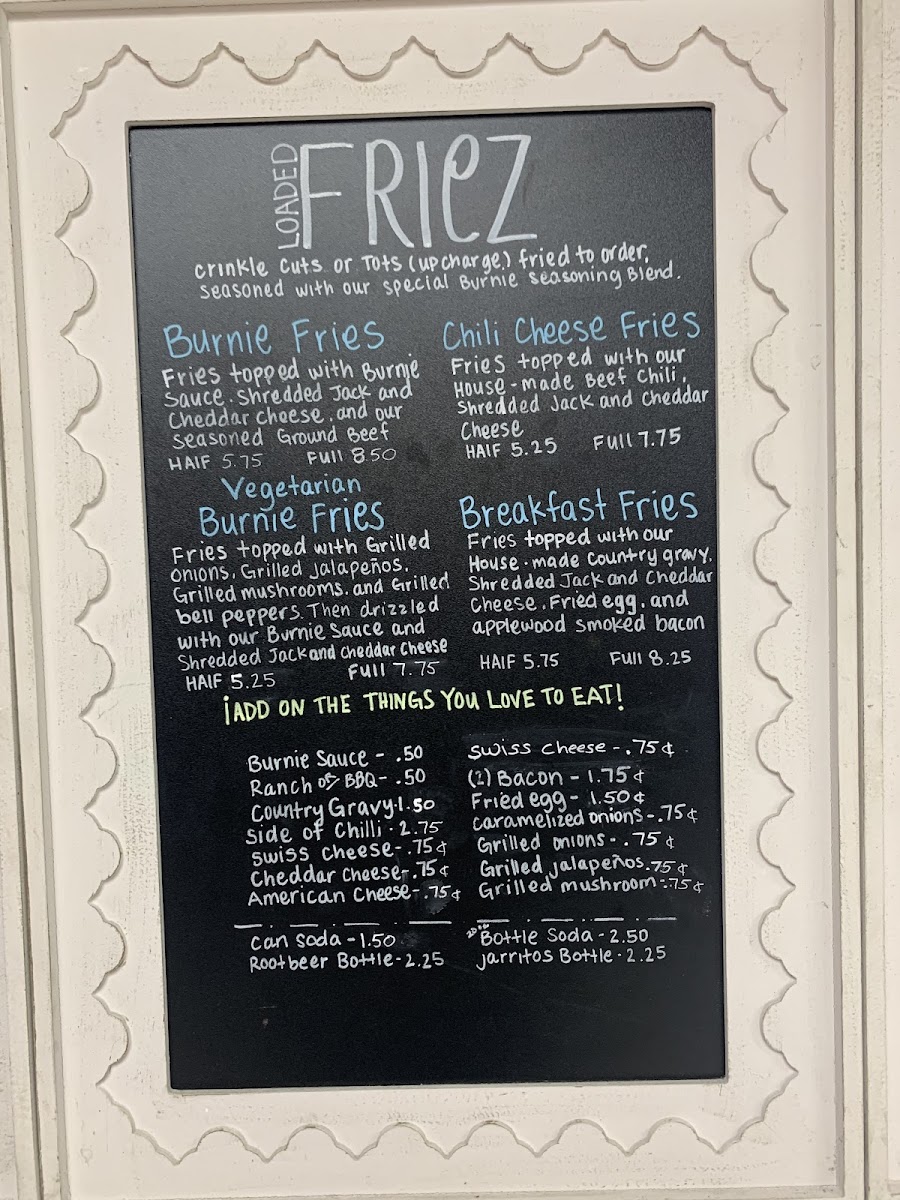 LOADED FRIEZ
Crinkle Cuts or Tots (upcharge) fried to order.
Seasoned with our special Burnie Seasoning Blend.
Burnie Fries
Fries topped with Burnie
Sauce. Shredded Jack and
Cheddar Cheese, and our
Seasoned Ground Beef
HAlF 5.75 FUll 8.50
Vegetarian
Burnie Fries
Fries topped with Grilled
Onions, Grilled jalapeños,
Grilled mushrooms, and Grilled
bell peppers. Then drizzled
with our Burnie Sauce and
Shredded Jack and cheddar cheese
HAlF 5.25 FUll 7.75
Chili Cheese Fries
Fries topped with our
House-made Beef Chili,
Shredded Jack and Cheddar
Cheese
HAlF 5.25 FUll 7.75
Breakfast Fries
Fries topped with our
House-made Country gravy,
Shredded Jack and Cheddar
Cheese, Fried egg, and
applewood smoked bacon
HAlF 5.75 FUll 8.25
¡ADD ON THE THINGS YOU LOVE TO EAT!
Burnie Sauce - .50
Ranch or BBQ - .50
Country Gravy-1.50
Side of Chilli - 2.75
Swiss cheese - .75¢
Cheddar Cheese - .75¢
American Cheese - .75¢
Swiss cheese - .75¢
(2) Bacon - 1.75¢
Fried egg - 1.50¢
Caramelized onions - .75¢
Grilled onions - .75¢
Grilled jalapeños .75¢
Grilled mushroom - .75¢
Can Soda - 1.50
Rootbeer Bottle - 2.25
Bottle Soda - 2.50
Jarritos Bottle - 2.25